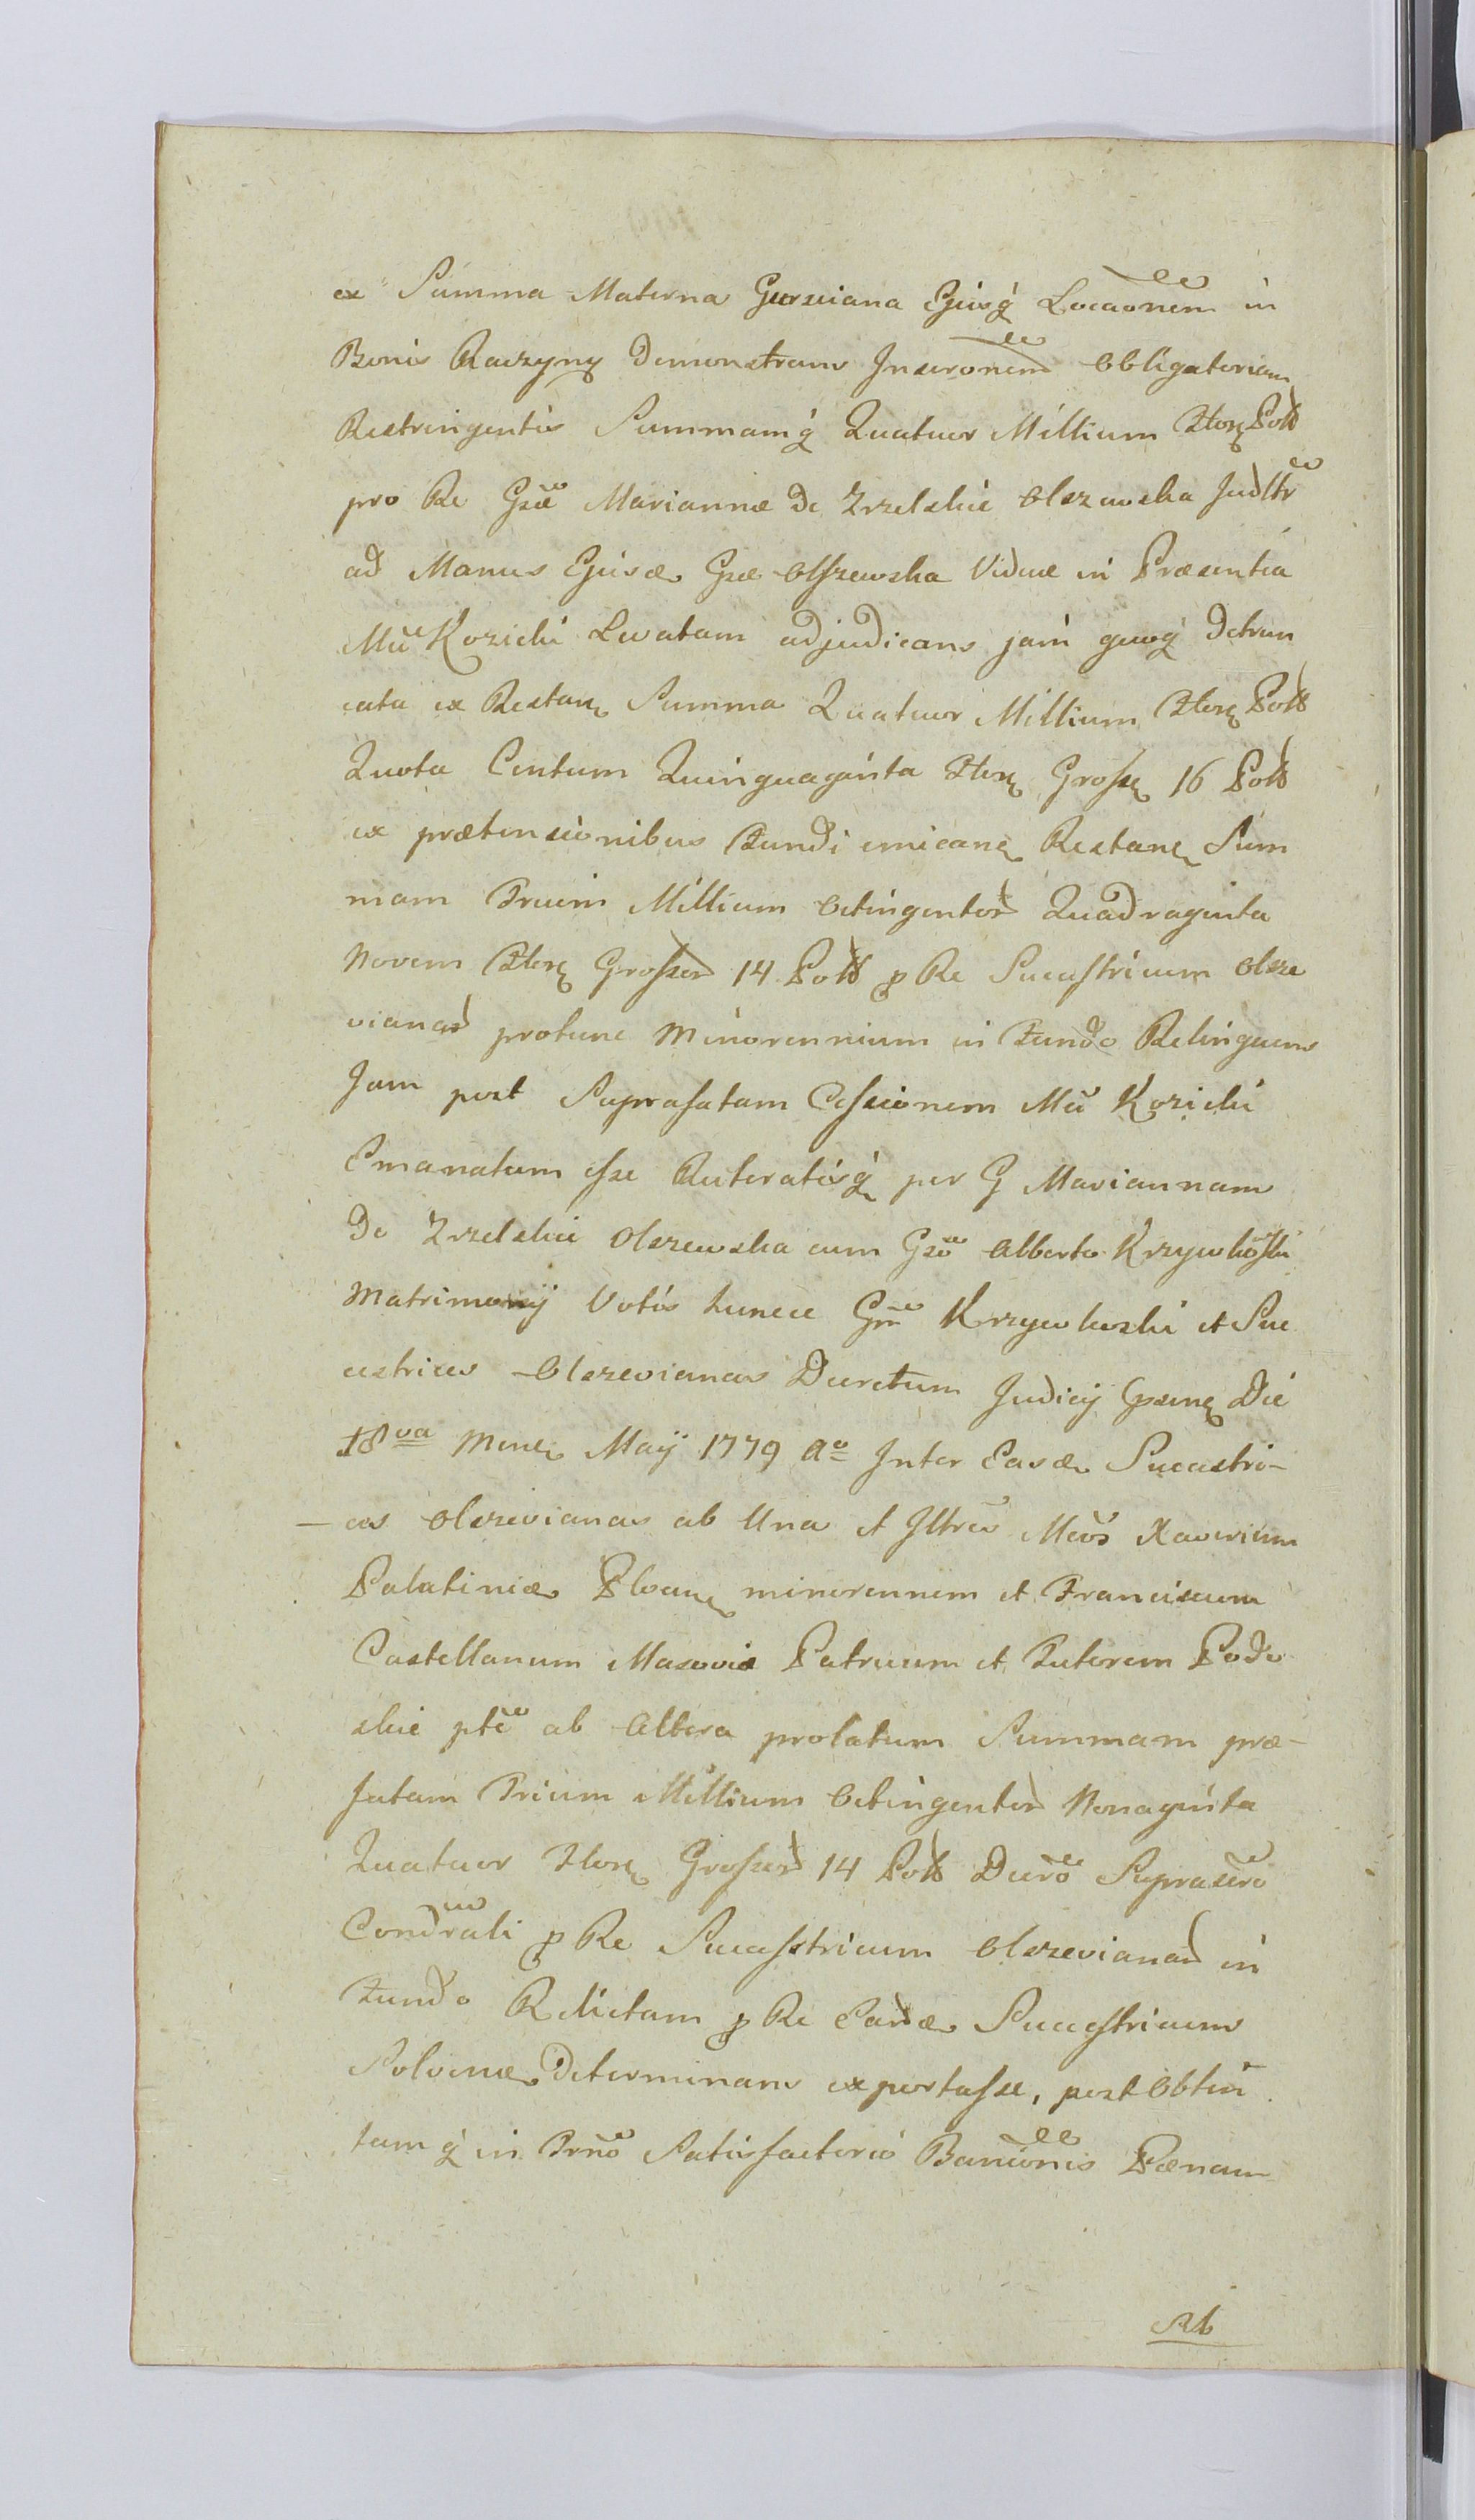 ex Summa Materna Gurxiana Ejusq̀ Locaonem in
Bonis Raczyny demonstrans Inseronem obligatoriam
Restringentis Summamq̀ Quatuor Millium Flor Poll
pro Re Gsæ Mariannæ de Zrzelskie Olszewska Judltr
ad Manus Ejusd Gsæ Olszewska Viduæ in Præsentia
Mci Kozicki Levatam adjudicans jam quoq̀ detrun
cata ex Restan Summa Quatuor Millium Flor Poll
Quota Centum Quinquaginta Flor Gross 16 Poll
ex prætensionibus Fundi emican Restan Sum
mam Trium Millium Octingentor Quadraginta
Novem Flor Grosser 14 Poll p Re Sucestricum Olsze
vianar protunc Minorennium in Fundo Relinquens
Jam post Suprafatam Cessionem Mci Kozicki
Emanatum esse Reiteratisq̀ per G Mariannam
De Zrzelskie Olszewska cum Gso Alberto Krzywkoski
Matrimonÿ Votis hunce Gm Krzywkoski et Suc
cestrices Olszevianas Decretum Judicÿ Gpsen Die
18va Mens Maÿ 1779 Ao Inter Easd Sucestri-
ces Olszevianas ab Una et Illres Mcos Xaverium
Palatinid Plocen minorennem et Franciscum
Castellanum Masoviæ Patruum et Tutorem Podo
skie pte ab Altera prolatum Summam præ-
fatam Trium Millium Octingentor Nonaginta
Quatuor Flor Grosser 14 Poll Decro Suprascro
Condrali p Re Sucestricum Olszevianar in
Fundo Relictam p Re Eard Sucestricum
Solvend Determinans exportasse, post Obten
tam q̀ in Trno Satisfactorio Banionis Pænam
Ab